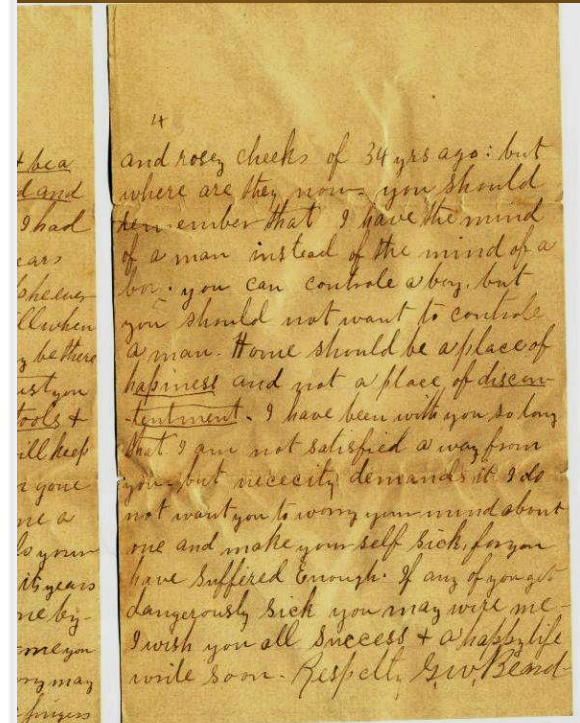 & be a
d and
I had
ears
she ever
ll when
y be there
ust you
tools &
ill keep
n gone
me a
ls your
its years
me by-
me you
ry may
fingers
14
and rosey cheeks of 34 yrs ago: but
where are they now you should
remember that I have the mind
of a man instead of the mind of a
boy. you can controle a boy, but
you should not want to controle
a man. Home should be a place of
hapiness and not a place of discon-
-tentment. I have been with you so long
that I am not satisfied a way from
you, but nececity demands it I do
not want you to worry your mind about
me and make your self sick, for you
have suffered Enough. If any of you get
dangerously sick you may wire me-
I wish you all success & a happy life
write soon. Respctly G.W. Beard-